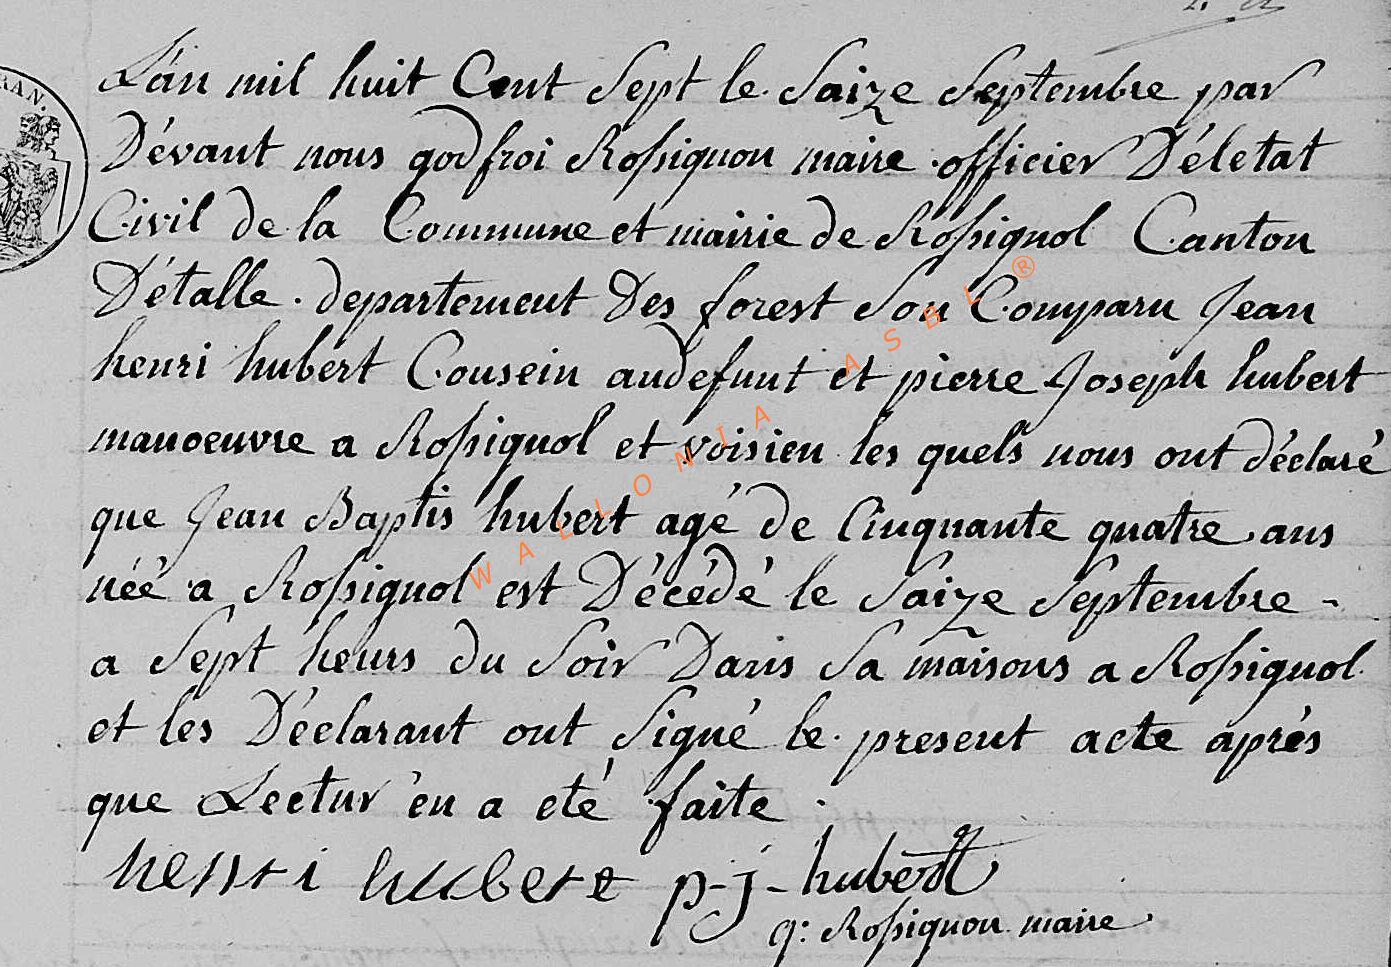 RAN.
L'án mil huit Cent Sept le Saize Septembre par
D'évant nous godfroi Rossignon maire officier D'életat
Civil de la Commune et mairie de Rossignol Canton
D'étalle . departement Des forest Son Comparu Jean
henri hubert Cousein audefunt et pierre Joseph hubert
manoeuvre a Rossignol et voisien les quels nous ont déclaré
que Jean Baptis hubert agé de Cinquante quatre ans
néé a Rossignol est Décédé le Saize Septembre -
a Sept heurs du Soir Dans Sa maisons a Rossignol
et les Déclarant ont Signé le present acte aprés
que Lectur én a eté faite .
henri hubert p-j-hubert
g: Rossignon maire
WALLONIA ASBL ®